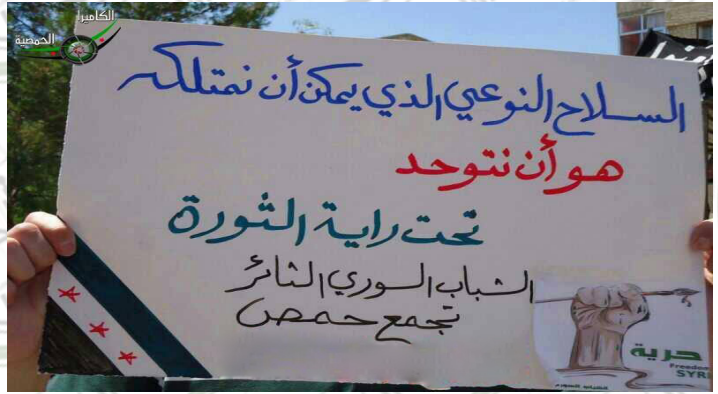 الكاميرا
الحمصية
السلاح النوعي الذي يمكن أن نمتلكه
هو أن نتوحد
تحت راية الثورة
الشباب السوري الثائر
تجمع حمص
حرية
Freedom
SYRI
الشباب السوري